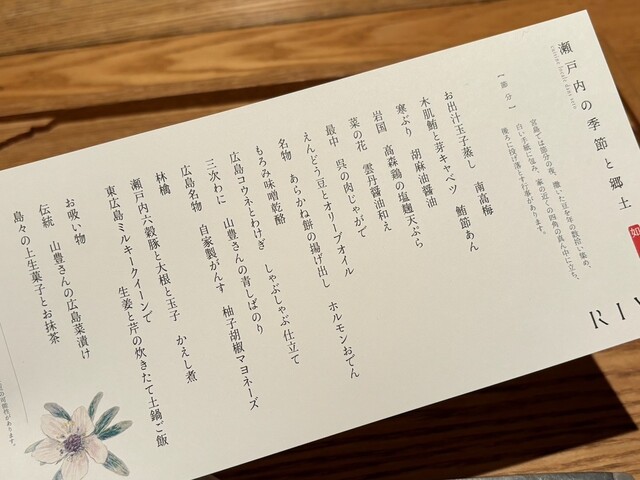 瀬戸内の季節と郷土
【節分】
宮島では節分の夜、
白い手紙に包み、家の近くの四角の真ん中に立ち、
後ろに投げ落とす行事があります。
お出汁玉子蒸し　南高梅
木肌鮪と芽キャベツ　鮪節あん
寒ぶり　胡麻油醤油
岩国　高森鶏の塩麹天ぷら
菜の花　雲丹醤油和え
最中　呉の肉じゃがて
えんどう豆とオリーブオイル
名物　あらかね餅の揚げ出し　ホルモンおでん
もろみ味噌乾酪
広島コウネとわけぎ　しゃぶしゃぶ仕立て
三次わに　山豊さんの青しばのり
広島名物　自家製がんす　柚子胡椒マヨネーズ
林檎
瀬戸内六穀豚と大根と玉子　かえし煮
東広島ミルキークイーンで
生姜と芹の炊きたて土鍋ご飯
お吸い物
伝統　山豊さんの広島菜漬け
島々の上生菓子とお抹茶
RIV
如
の可能性があります。